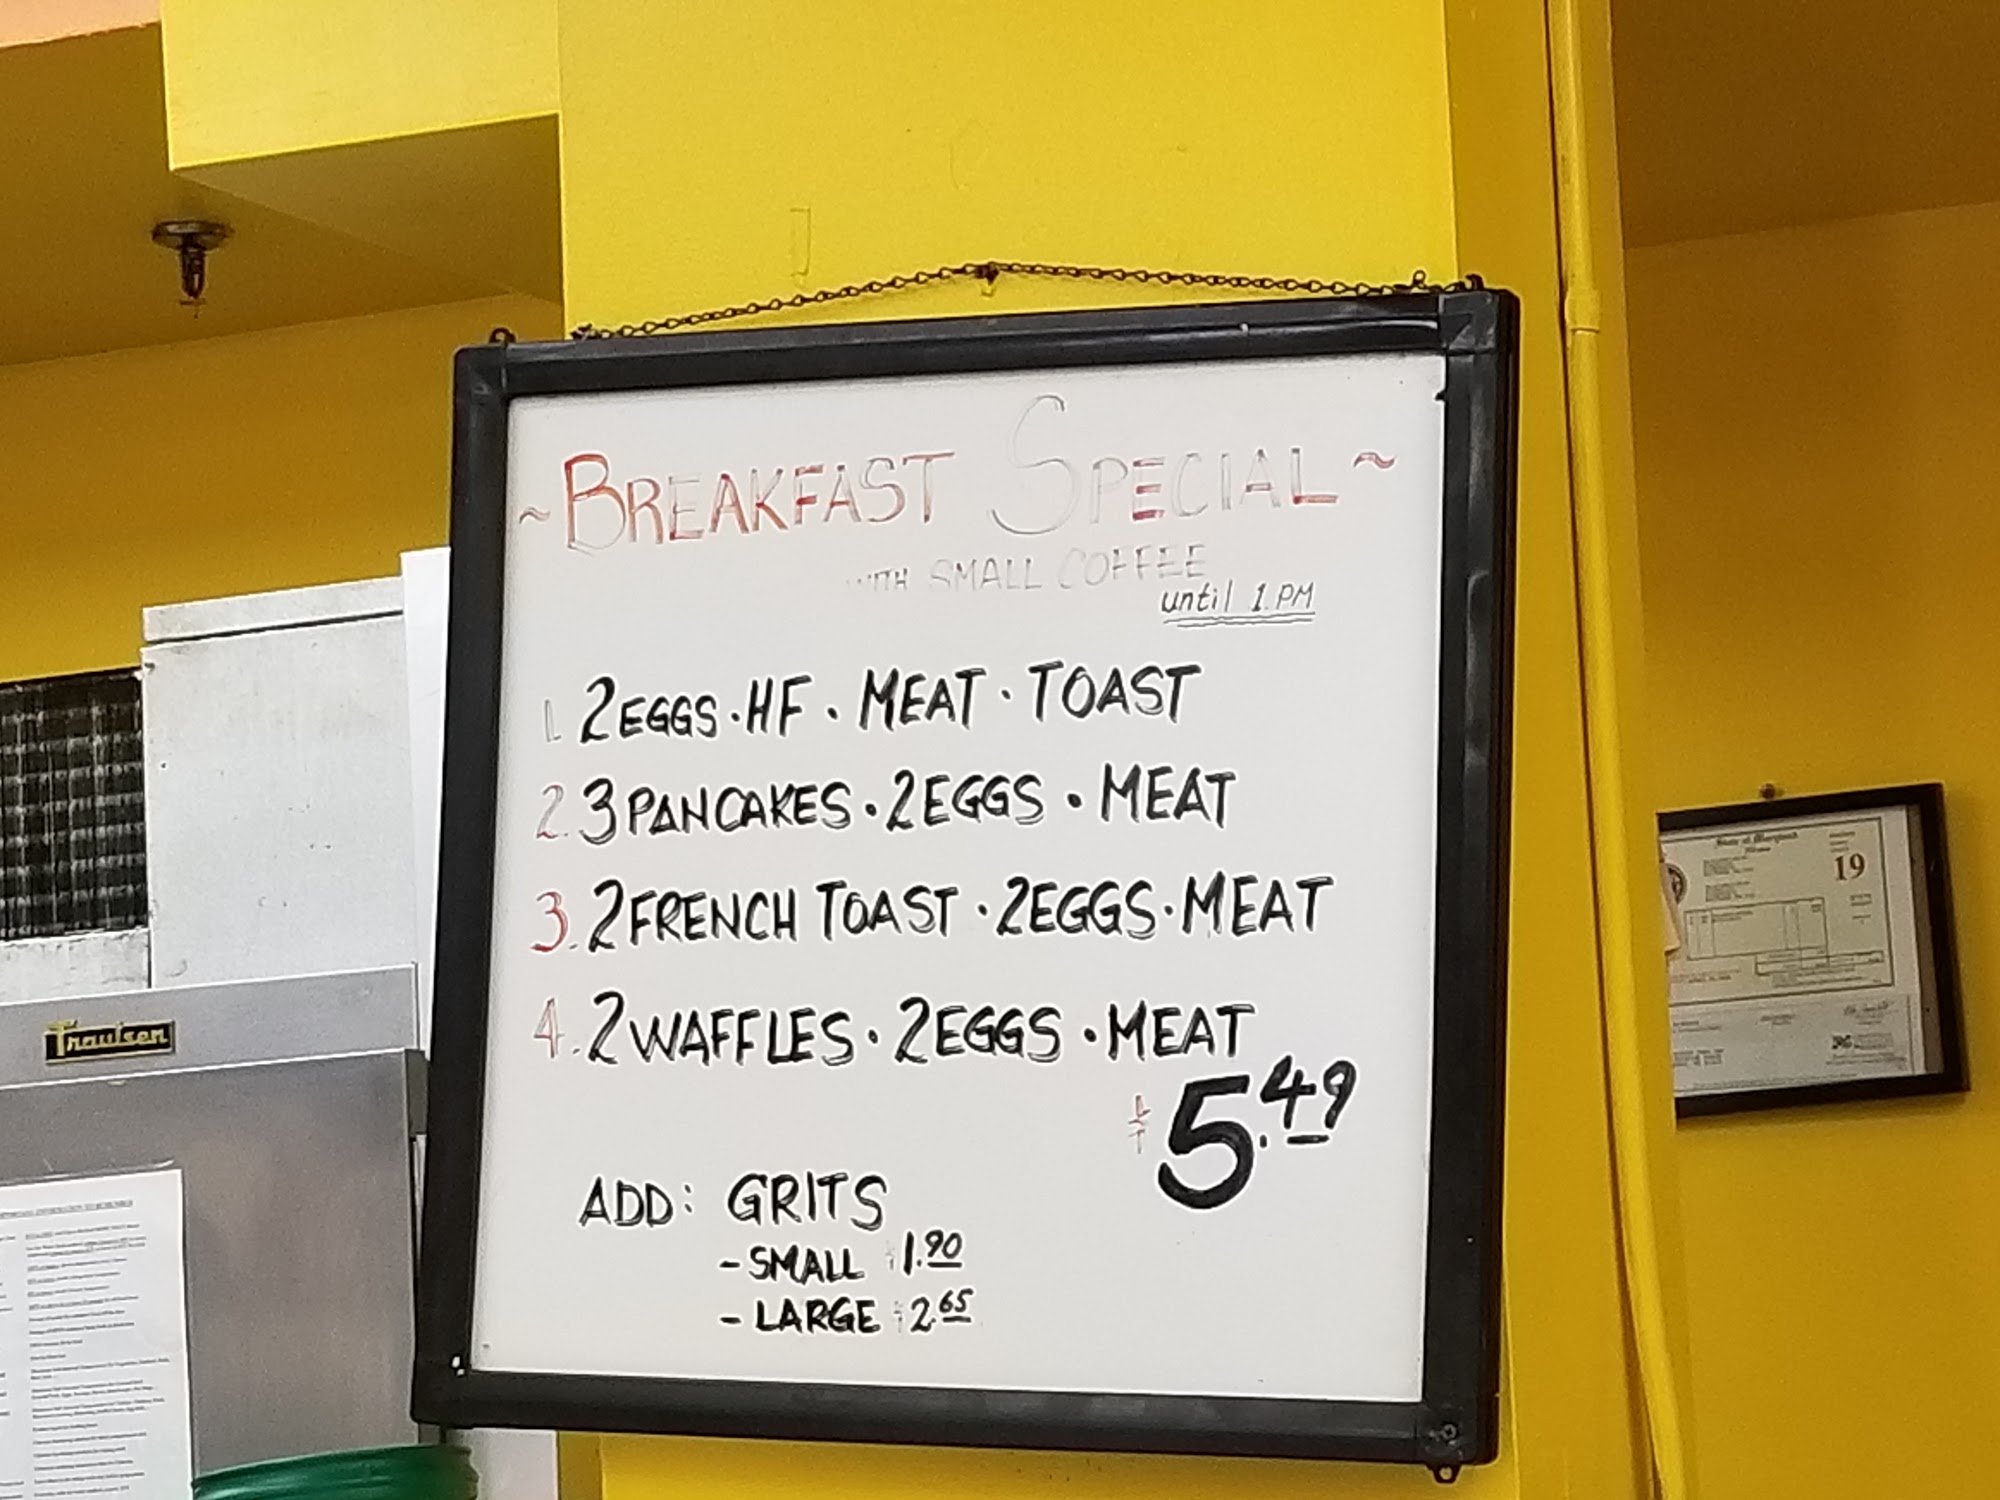 ~BREAKFAST SPECIAL~
WITH SMALL COFFEE
until 1 PM
1. 2 EGGS · HF · MEAT · TOAST
2. 3 PANCAKES · 2 EGGS · MEAT
3. 2 FRENCH TOAST · 2 EGGS · MEAT
4. 2 WAFFLES · 2 EGGS · MEAT
$5.49
ADD: GRITS
- SMALL $1.90
- LARGE $2.65
Traulsen
State of Maryland
19